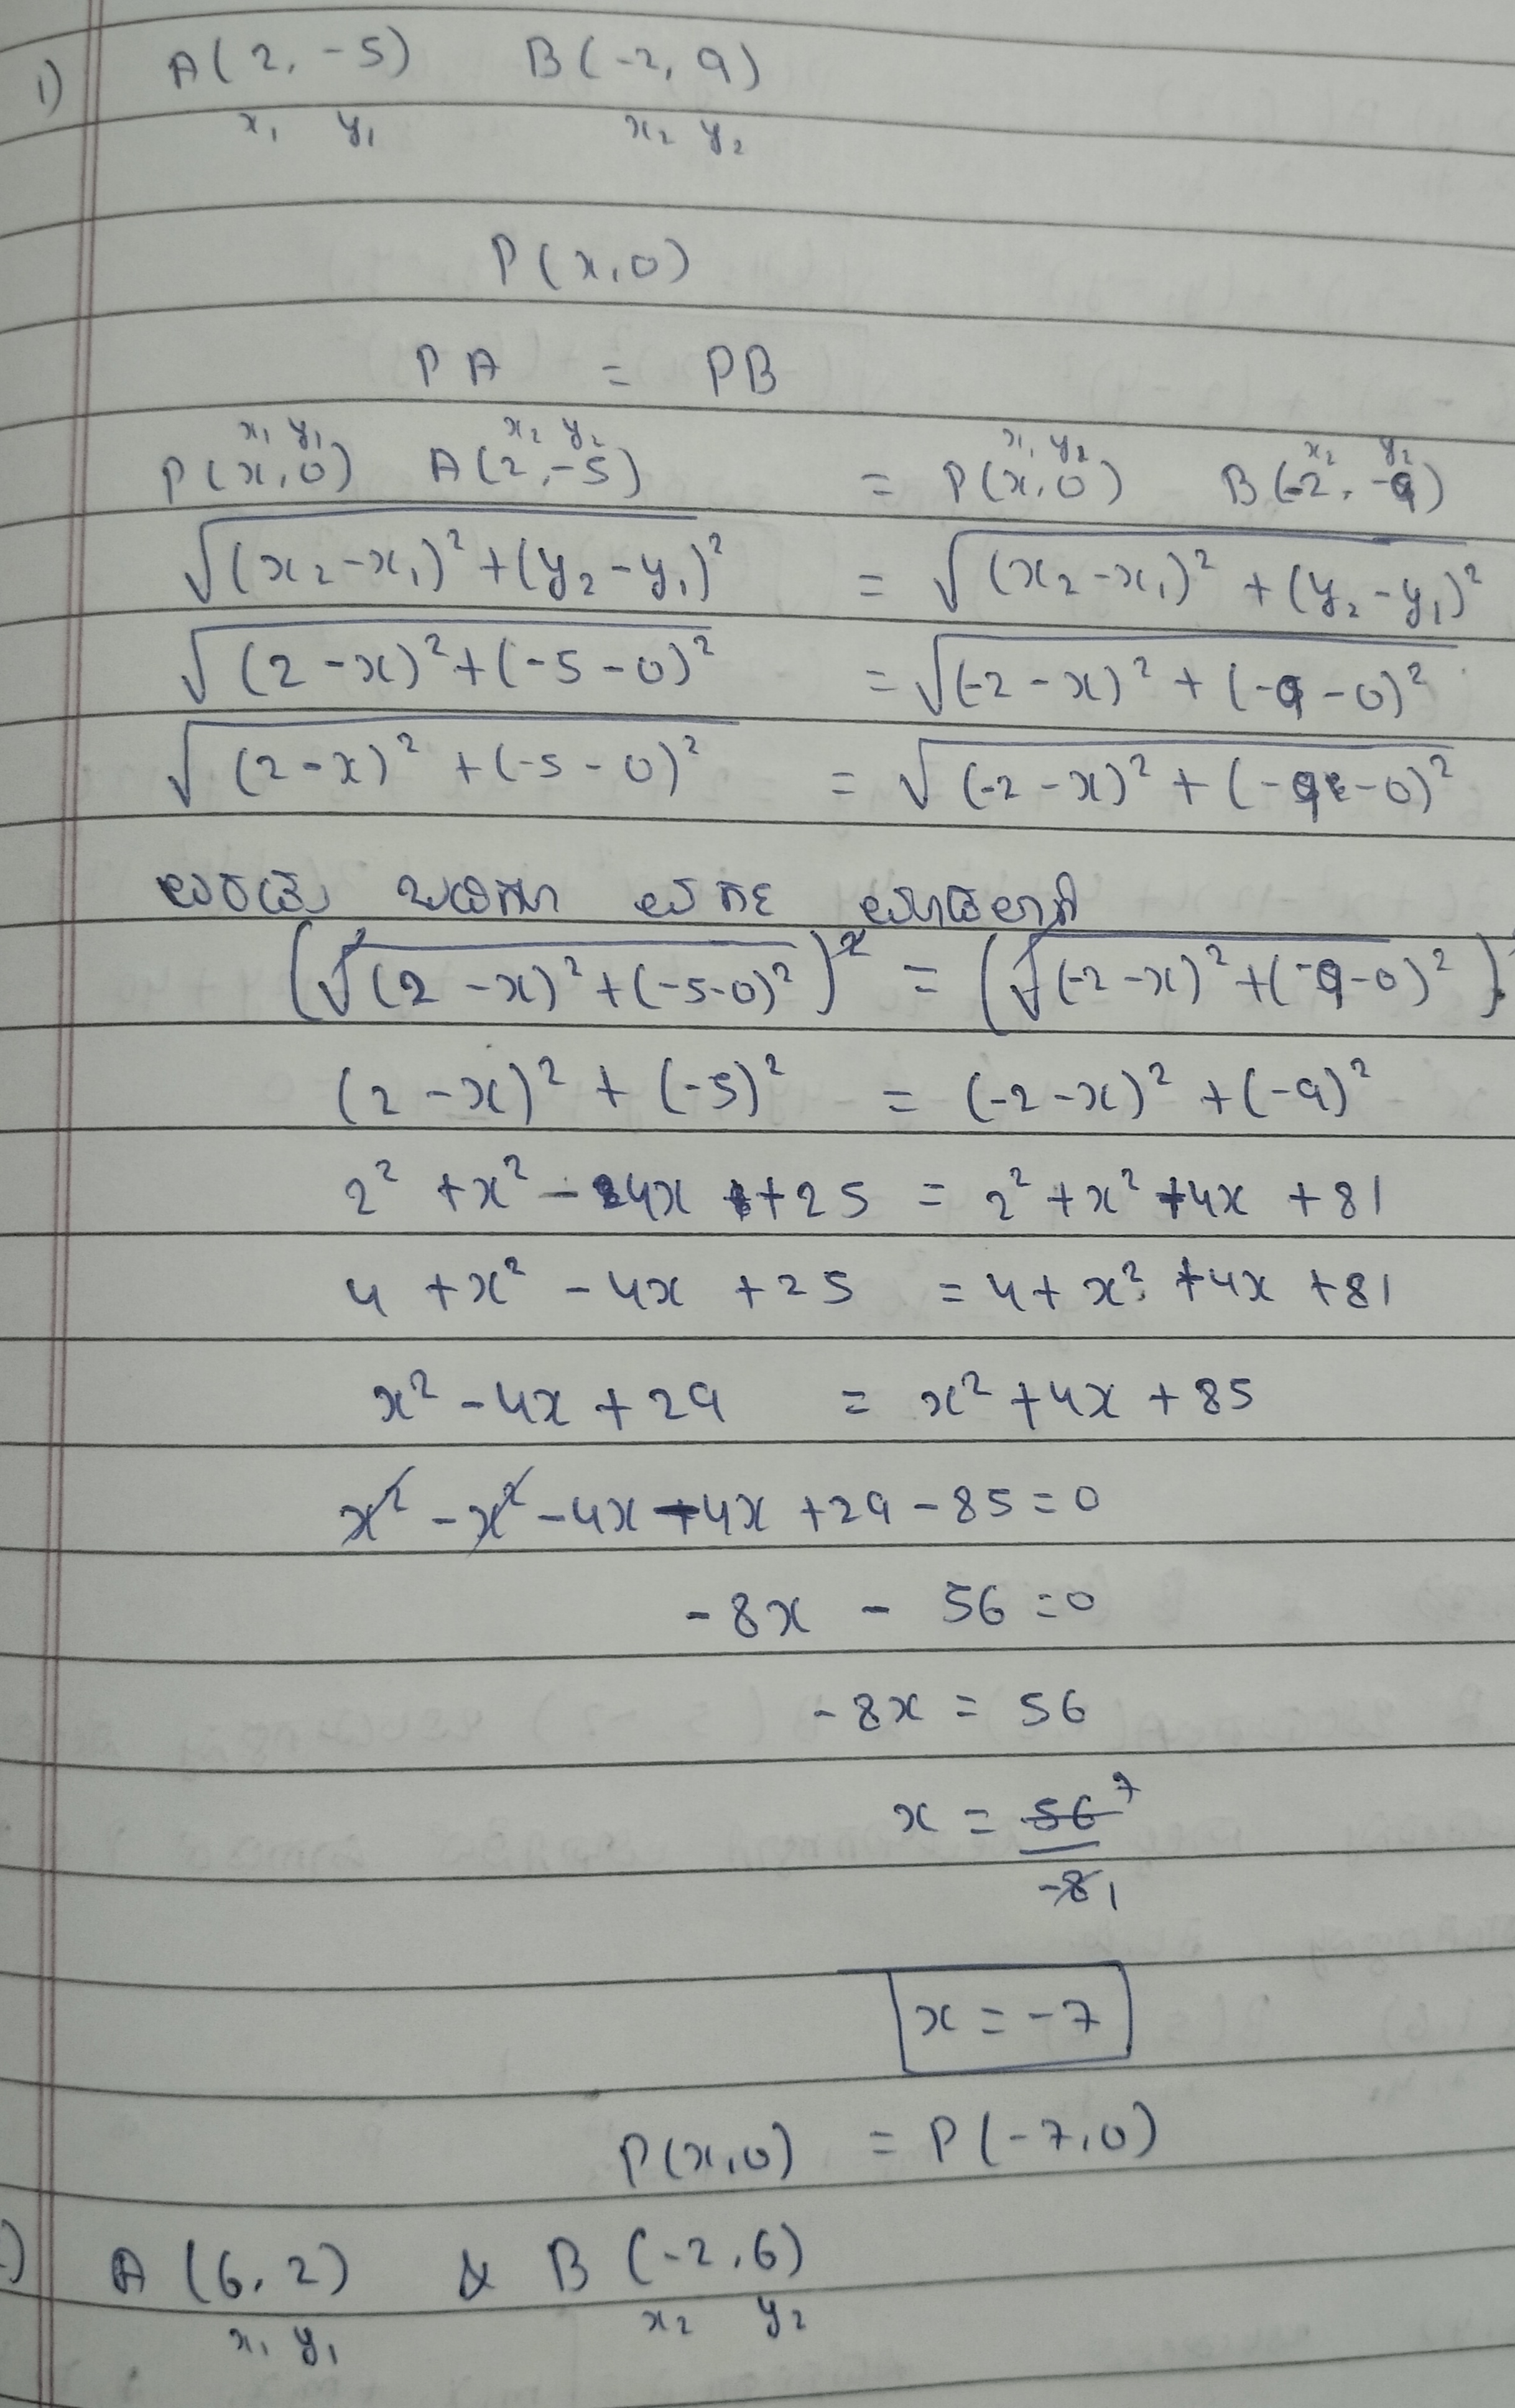 1) A(2, -5) B(-2, 9)
x₁ y₁ x₂ y₂
P(x, 0)
PA = PB
x₁ y₁ x₂ y₂ x₁ y₂ x₂ y₂
P(x, 0) A(2, -5) = P(x, 0) B(-2, -9)
√(x₂-x₁)²+(y₂-y₁)² = √(x₂-x₁)²+(y₂-y₁)²
√(2-x)²+(-5-0)² = √(-2-x)²+(-9-0)²
√(2-x)²+(-5-0)² = √(-2-x)²+(-9-0)²
ಎರಡು ಬದಿಗೂ ವರ್ಗ
(√(2-x)²+(-5-0)²)² = (√(-2-x)²+(-9-0)²)
(2-x)² + (-5)² = (-2-x)² +(-9)²
2² +x² -4x +25 = 2²+x²+4x +81
4 +x² -4x +25 = 4+x² +4x +81
x² -4x +29 = x²+4x+85
x² -x² -4x -4x +29-85=0
-8x - 56 =0
-8x = 56
x = 56 7
-8 1
x = -7
P(x,0) = P(-7,0)
) A (6, 2) & B (-2, 6)
x₁ y₁ x₂ y₂